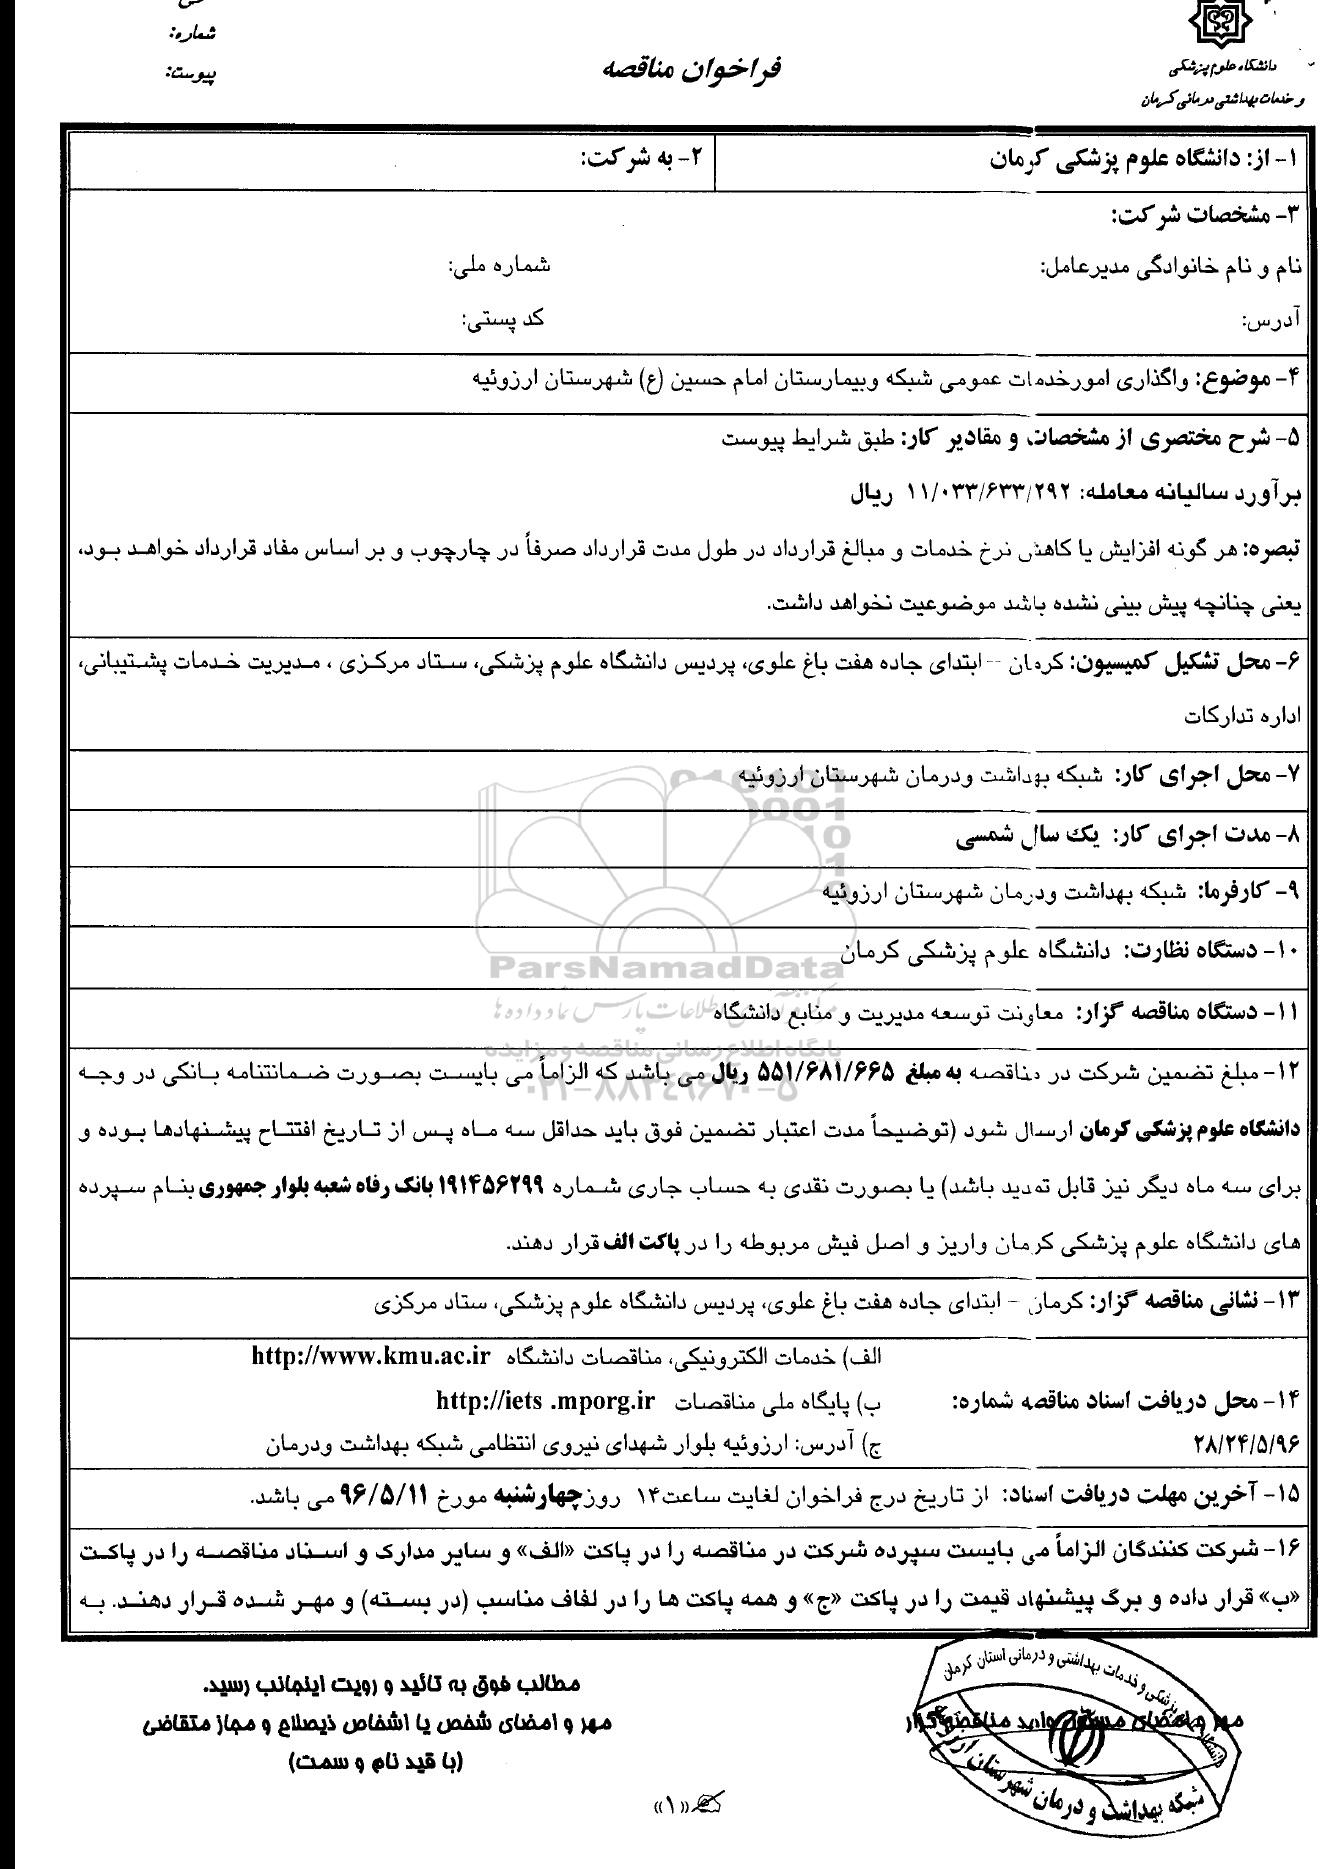 شماره:
پیوست:
فراخوان مناقصه
دانشگاه علوم پزشکی
و خدمات بهداشتی درمانی کرمان
۱- از: دانشگاه علوم پزشکی کرمان
۲- به شرکت:
۳- مشخصات شرکت:
نام و نام خانوادگی مدیرعامل: شماره ملی:
آدرس: کد پستی:
۴- موضوع: واگذاری امورخدمات عمومی شبکه وبیمارستان امام حسین (ع) شهرستان ارزوئیه
۵- شرح مختصری از مشخصات و مقادیر کار: طبق شرایط پیوست
برآورد سالیانه معامله: ۱۱/۰۳۳/۶۳۳/۲۹۲ ریال
تبصره: هر گونه افزایش یا کاهش نرخ خدمات و مبالغ قرارداد در طول مدت قرارداد صرفاً در چارچوب و بر اساس مفاد قرارداد خواهد بود،
یعنی چنانچه پیش بینی نشده باشد موضوعیت نخواهد داشت.
۶- محل تشکیل کمیسیون: کرمان – ابتدای جاده هفت باغ علوی، پردیس دانشگاه علوم پزشکی، ستاد مرکزی ، مدیریت خدمات پشتیبانی،
اداره تدارکات
۷- محل اجرای کار: شبکه بهداشت ودرمان شهرستان ارزوئیه
۸- مدت اجرای کار: یک سال شمسی
۹- کارفرما: شبکه بهداشت ودرمان شهرستان ارزوئیه
۱۰- دستگاه نظارت: دانشگاه علوم پزشکی کرمان
ParsNamadData
۱۱- دستگاه مناقصه گزار: معاونت توسعه مدیریت و منابع دانشگاه
پایگاه اطلاع رسانی مناقصه و مزایده
۱۲- مبلغ تضمین شرکت در مناقصه به مبلغ ۵۵۱/۶۸۱/۶۶۵ ریال می باشد که الزاماً می بایست بصورت ضمانتنامه بانکی در وجه
۰۲۱-۸۸۳۴۹۶۷۰-۵
دانشگاه علوم پزشکی کرمان ارسال شود (توضیحاً مدت اعتبار تضمین فوق باید حداقل سه ماه پس از تاریخ افتتاح پیشنهادها بوده و
برای سه ماه دیگر نیز قابل تمدید باشد) یا بصورت نقدی به حساب جاری شماره ۱۹۱۴۵۶۲۹۹ بانک رفاه شعبه بلوار جمهوری بنام سپرده
های دانشگاه علوم پزشکی کرمان واریز و اصل فیش مربوطه را در پاکت الف قرار دهند.
۱۳- نشانی مناقصه گزار: کرمان – ابتدای جاده هفت باغ علوی، پردیس دانشگاه علوم پزشکی، ستاد مرکزی
۱۴- محل دریافت اسناد مناقصه شماره:
۲۸/۲۴/۵/۹۶
الف) خدمات الکترونیکی، مناقصات دانشگاه http://www.kmu.ac.ir
ب) پایگاه ملی مناقصات http://iets .mporg.ir
ج) آدرس: ارزوئیه بلوار شهدای نیروی انتظامی شبکه بهداشت ودرمان
۱۵- آخرین مهلت دریافت اسناد: از تاریخ درج فراخوان لغایت ساعت۱۴ روزچهارشنبه مورخ ۹۶/۵/۱۱ می باشد.
۱۶- شرکت کنندگان الزاماً می بایست سپرده شرکت در مناقصه را در پاکت «الف» و سایر مدارک و اسناد مناقصه را در پاکت
«ب» قرار داده و برگ پیشنهاد قیمت را در پاکت «ج» و همه پاکت ها را در لفاف مناسب (در بسته) و مهر شده قرار دهند. به
مهر و امضای مسئول واحد مناقصه گزار
شبکه بهداشت و درمان شهرستان ارزوئیه
مطالب فوق به تائید و رویت اینجانب رسید.
مهر و امضای شخص یا اشخاص ذیصلاح و مجاز متقاضی
(با قید نام و سمت)
«۱»